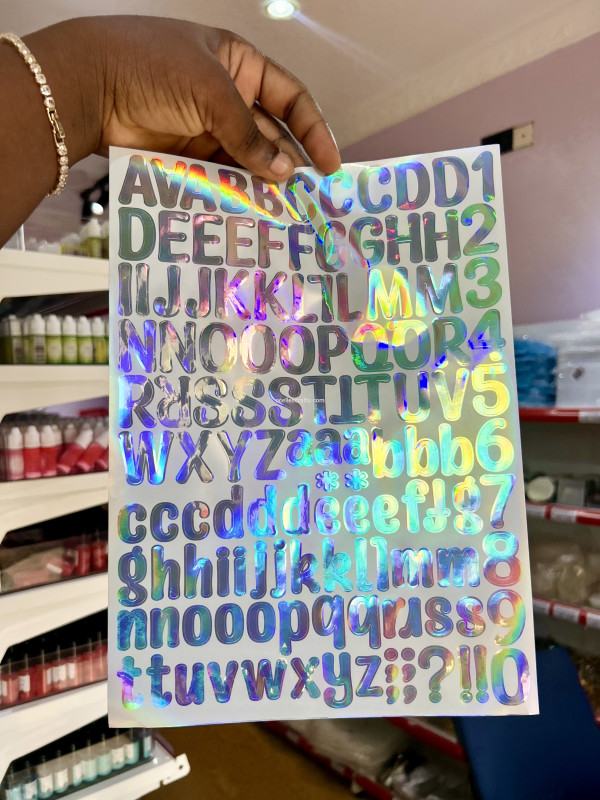 AVABBCCCDD1
DEEEFFGGHH2
IIJJKKLILMM3
NNOOOPQQR4
R&SSSTITUV5
WXYZaaabbb6
**
cccdddeeeffg7
ghhiijjkkllmm8
nnooopqqrrsss9
ttuvwxyz;;?!!0